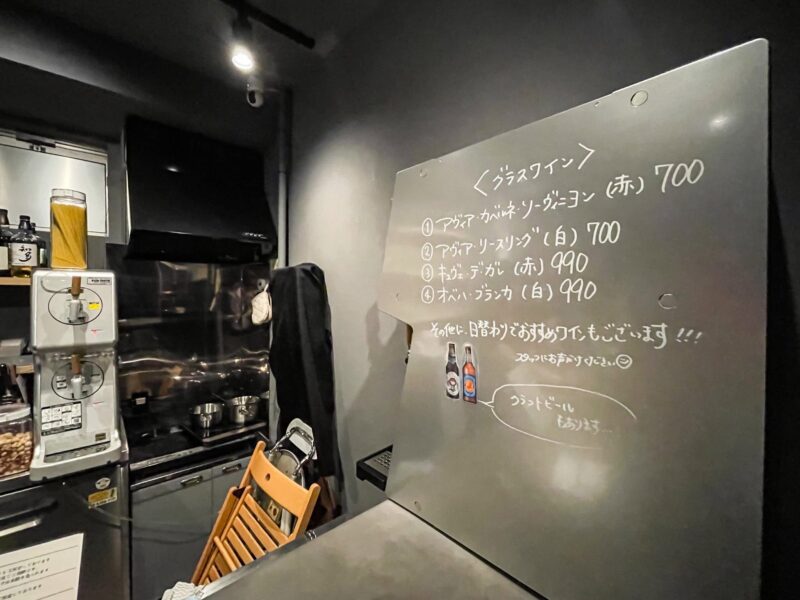 〈グラスワイン〉
① アヴィア・カベルネ・ソーヴィニヨン (赤) 700
② アヴィア・リースリング (白) 700
③ キュヴェ・デガレ (赤) 990
④ オベハ・ブランカ (白) 990
その他に、日替わりでおすすめワインもございます!!!
スタッフにお声がけください☺
クラフトビール
もあります…